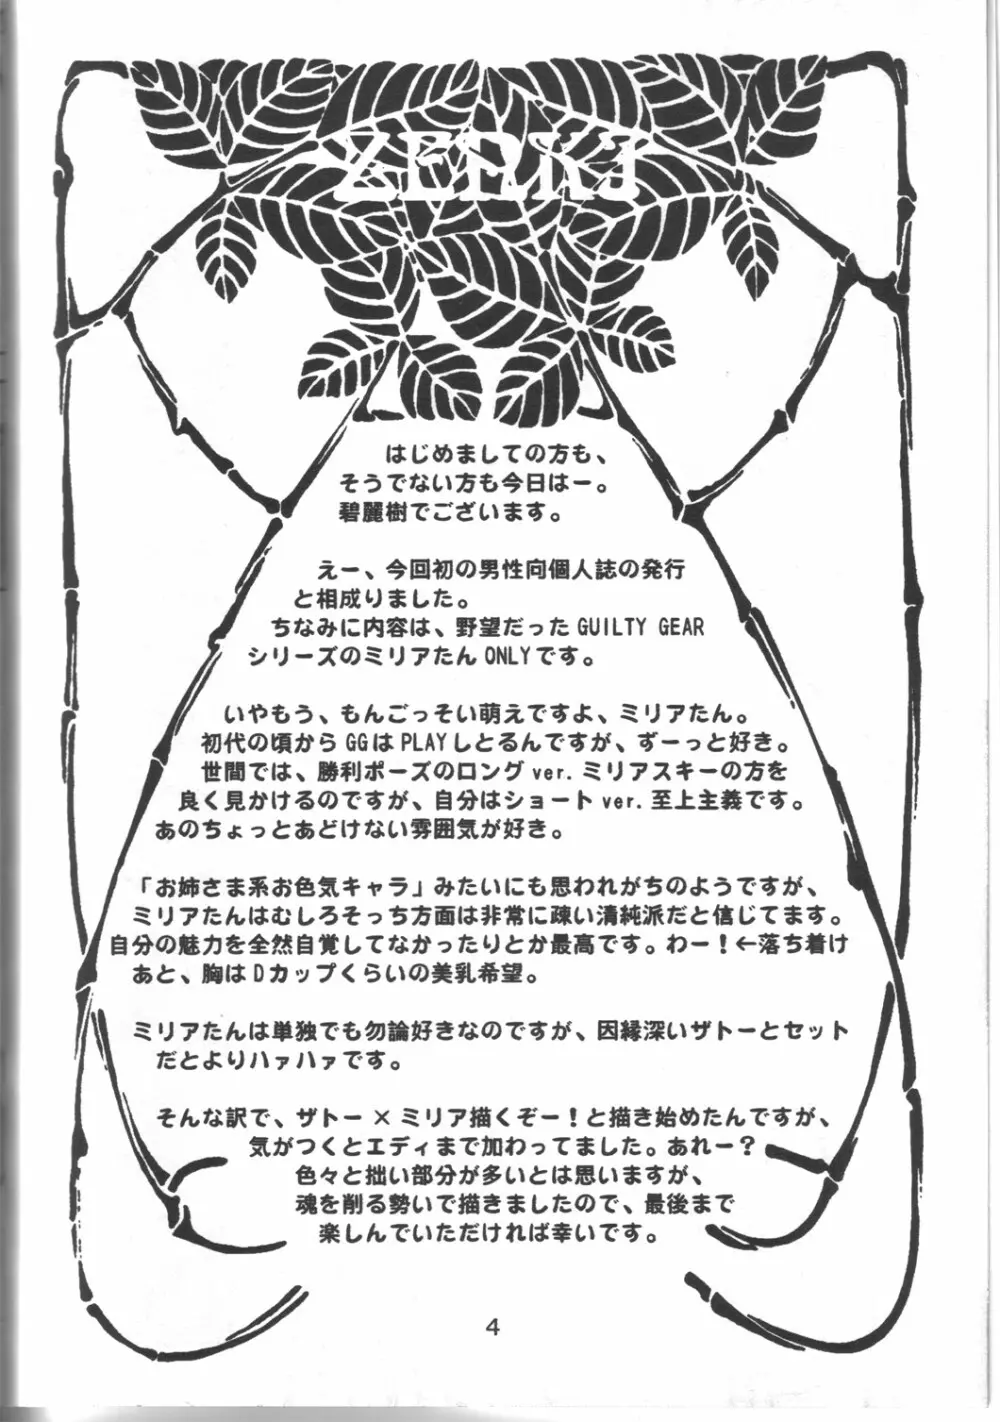 ZENKI
はじめましての方も、
そうでない方も今日はー。
碧麗樹でございます。
えー、今回初の男性向個人誌の発行
と相成りました。
ちなみに内容は、野望だったGUILTY GEAR
シリーズのミリアたんONLYです。
いやもう、もんごっそい萌えですよ、ミリアたん。
初代の頃からGGはPLAYしとるんですが、ずーっと好き。
世間では、勝利ポーズのロングver.ミリアスキーの方を
良く見かけるのですが、自分はショートver.至上主義です。
あのちょっとあどけない雰囲気が好き。
「お姉さま系お色気キャラ」みたいにも思われがちのようですが、
ミリアたんはむしろそっち方面は非常に疎い清純派だと信じてます。
自分の魅力を全然自覚してなかったりとか最高です。わー！←落ち着け
あと、胸はDカップくらいの美乳希望。
ミリアたんは単独でも勿論好きなのですが、因縁深いザトーとセット
だとよりハァハァです。
そんな訳で、ザトー×ミリア描くぞー！と描き始めたんですが、
気がつくとエディまで加わってました。あれー？
色々と拙い部分が多いとは思いますが、
魂を削る勢いで描きましたので、最後まで
楽しんでいただければ幸いです。
4